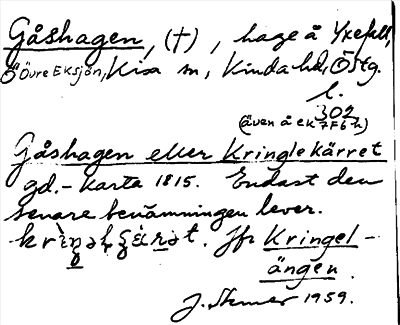 Gåshagen, (†), hage å Yxefall,
Övre Eksjön, Kisa sn, Kinda hd, Östg.
l.
302
(även å ek 7F6 h)
Gåshagen eller Kringlekärret
gd.-karta 1815. Endast den
senare benämningen lever.
Jfr Kringel-
ängen.
J. 1959.